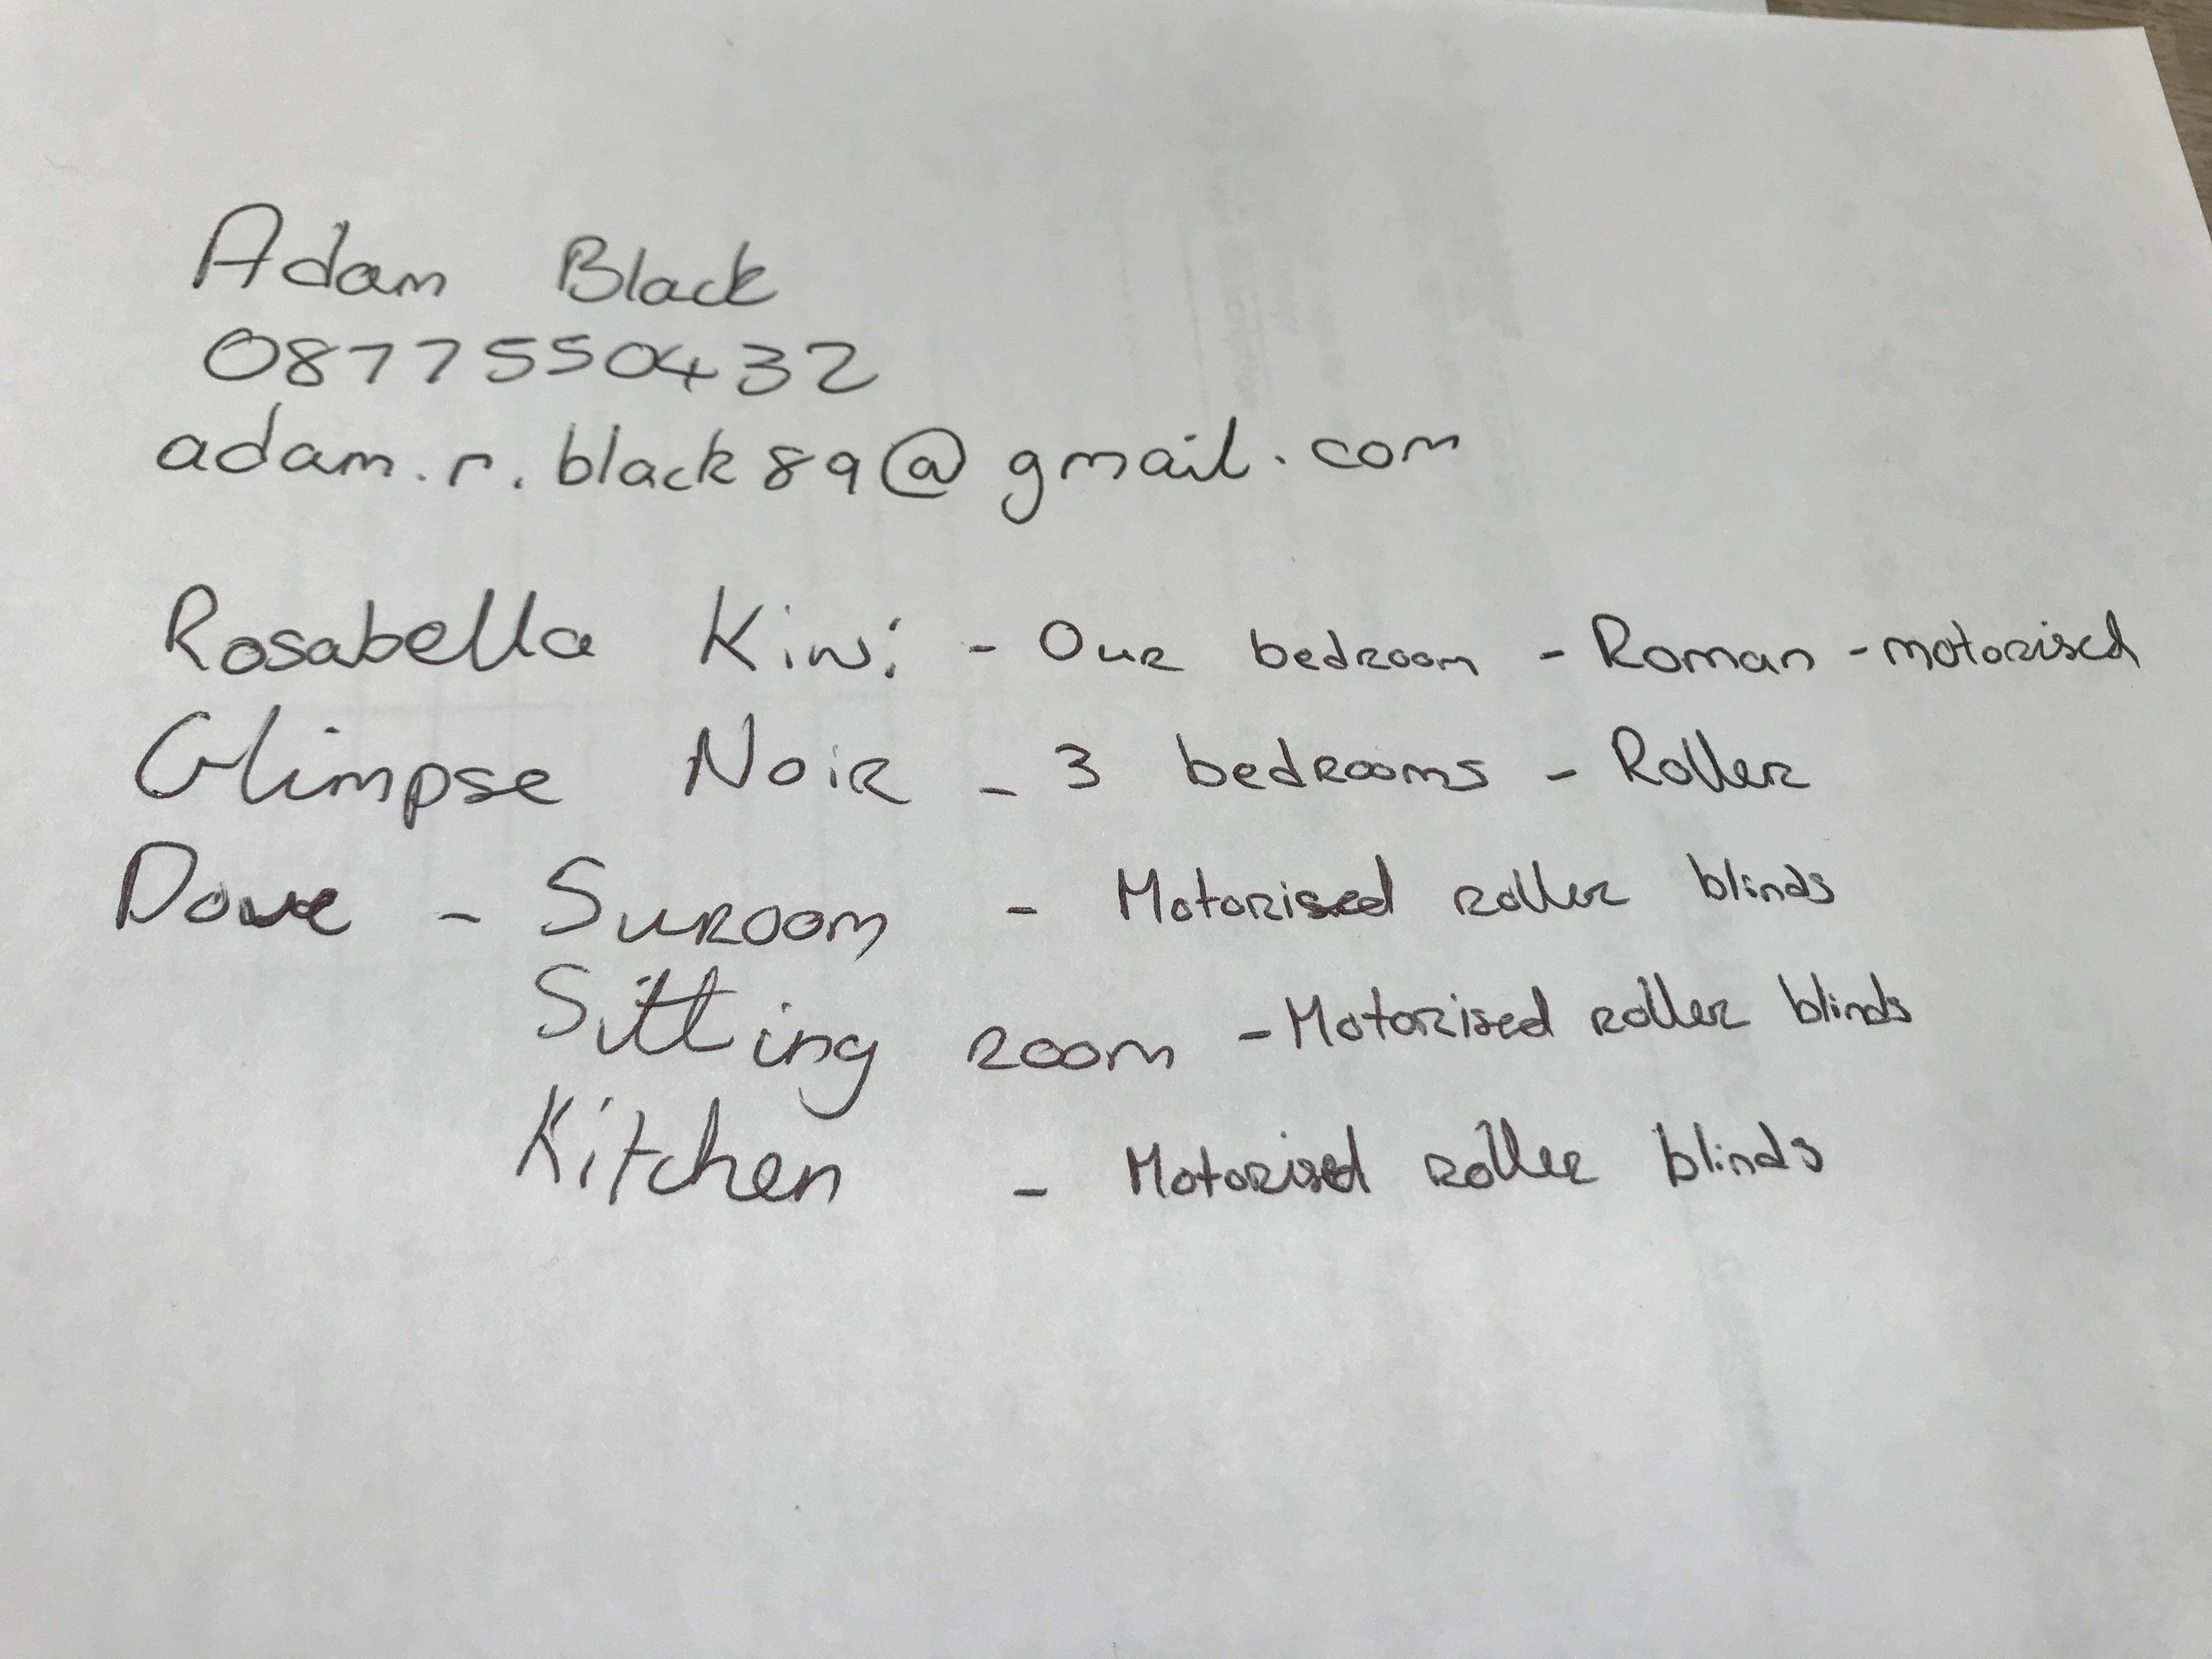 Adam Black
0877550432
adam.r.black89@gmail.com
Rosabella Kiwi - Our bedroom - Roman - motorised
Glimpse Noir - 3 bedrooms - Roller
Dove - Suroom - Motorised roller blinds
Sitting room - Motorised roller blinds
Kitchen - Motorised roller blinds